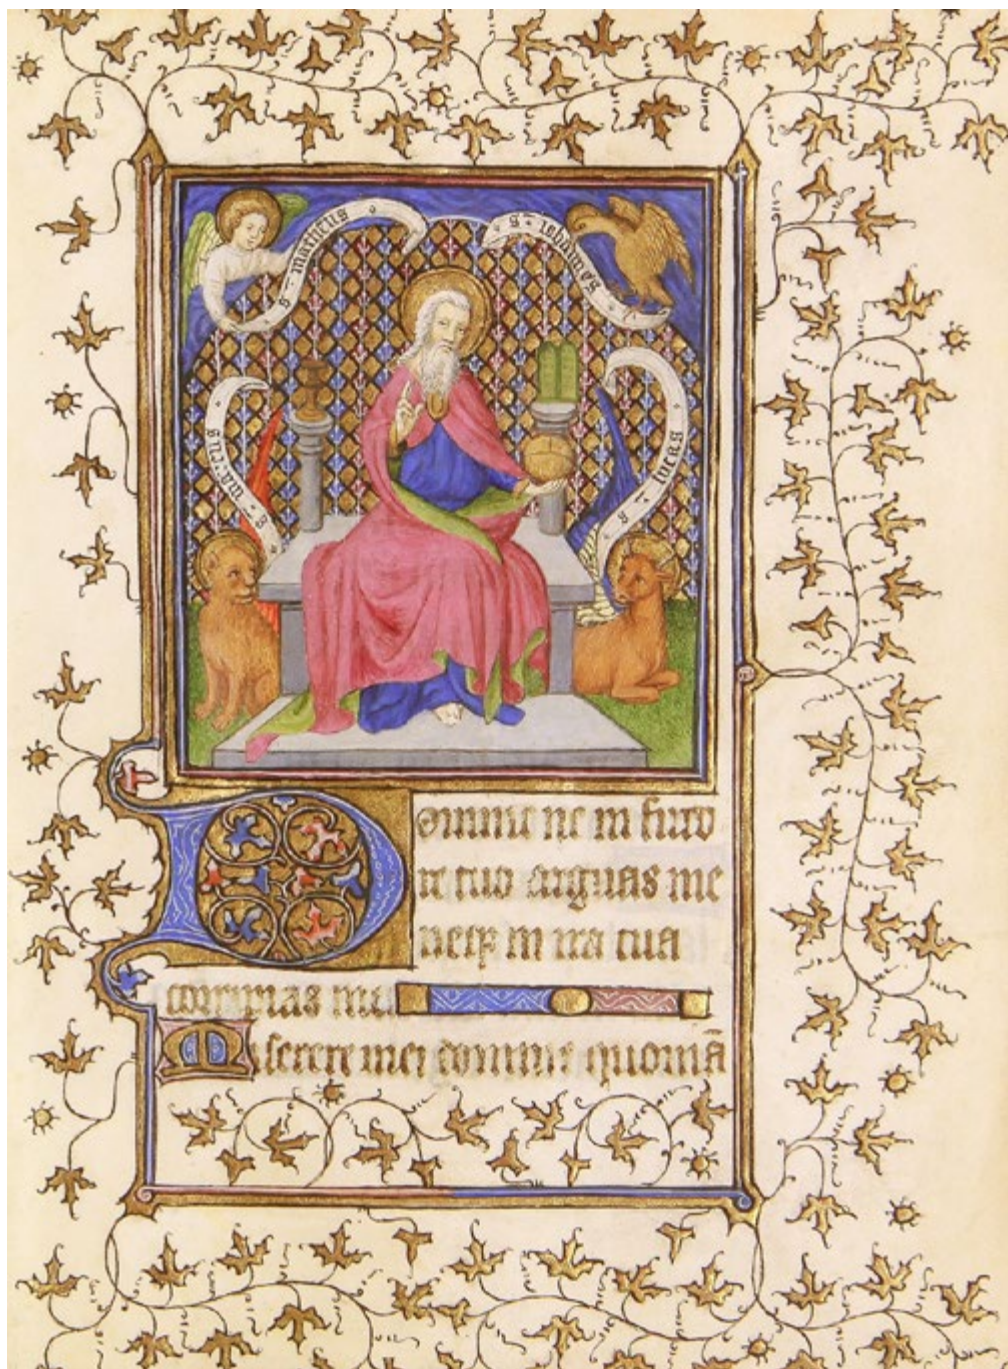 s matheus
s iohannes
s marcus
s lucas
Domine ne in furo
re tuo arguas me
neqꝫ in ira tua
corripias me
Miserere mei domine quoniā